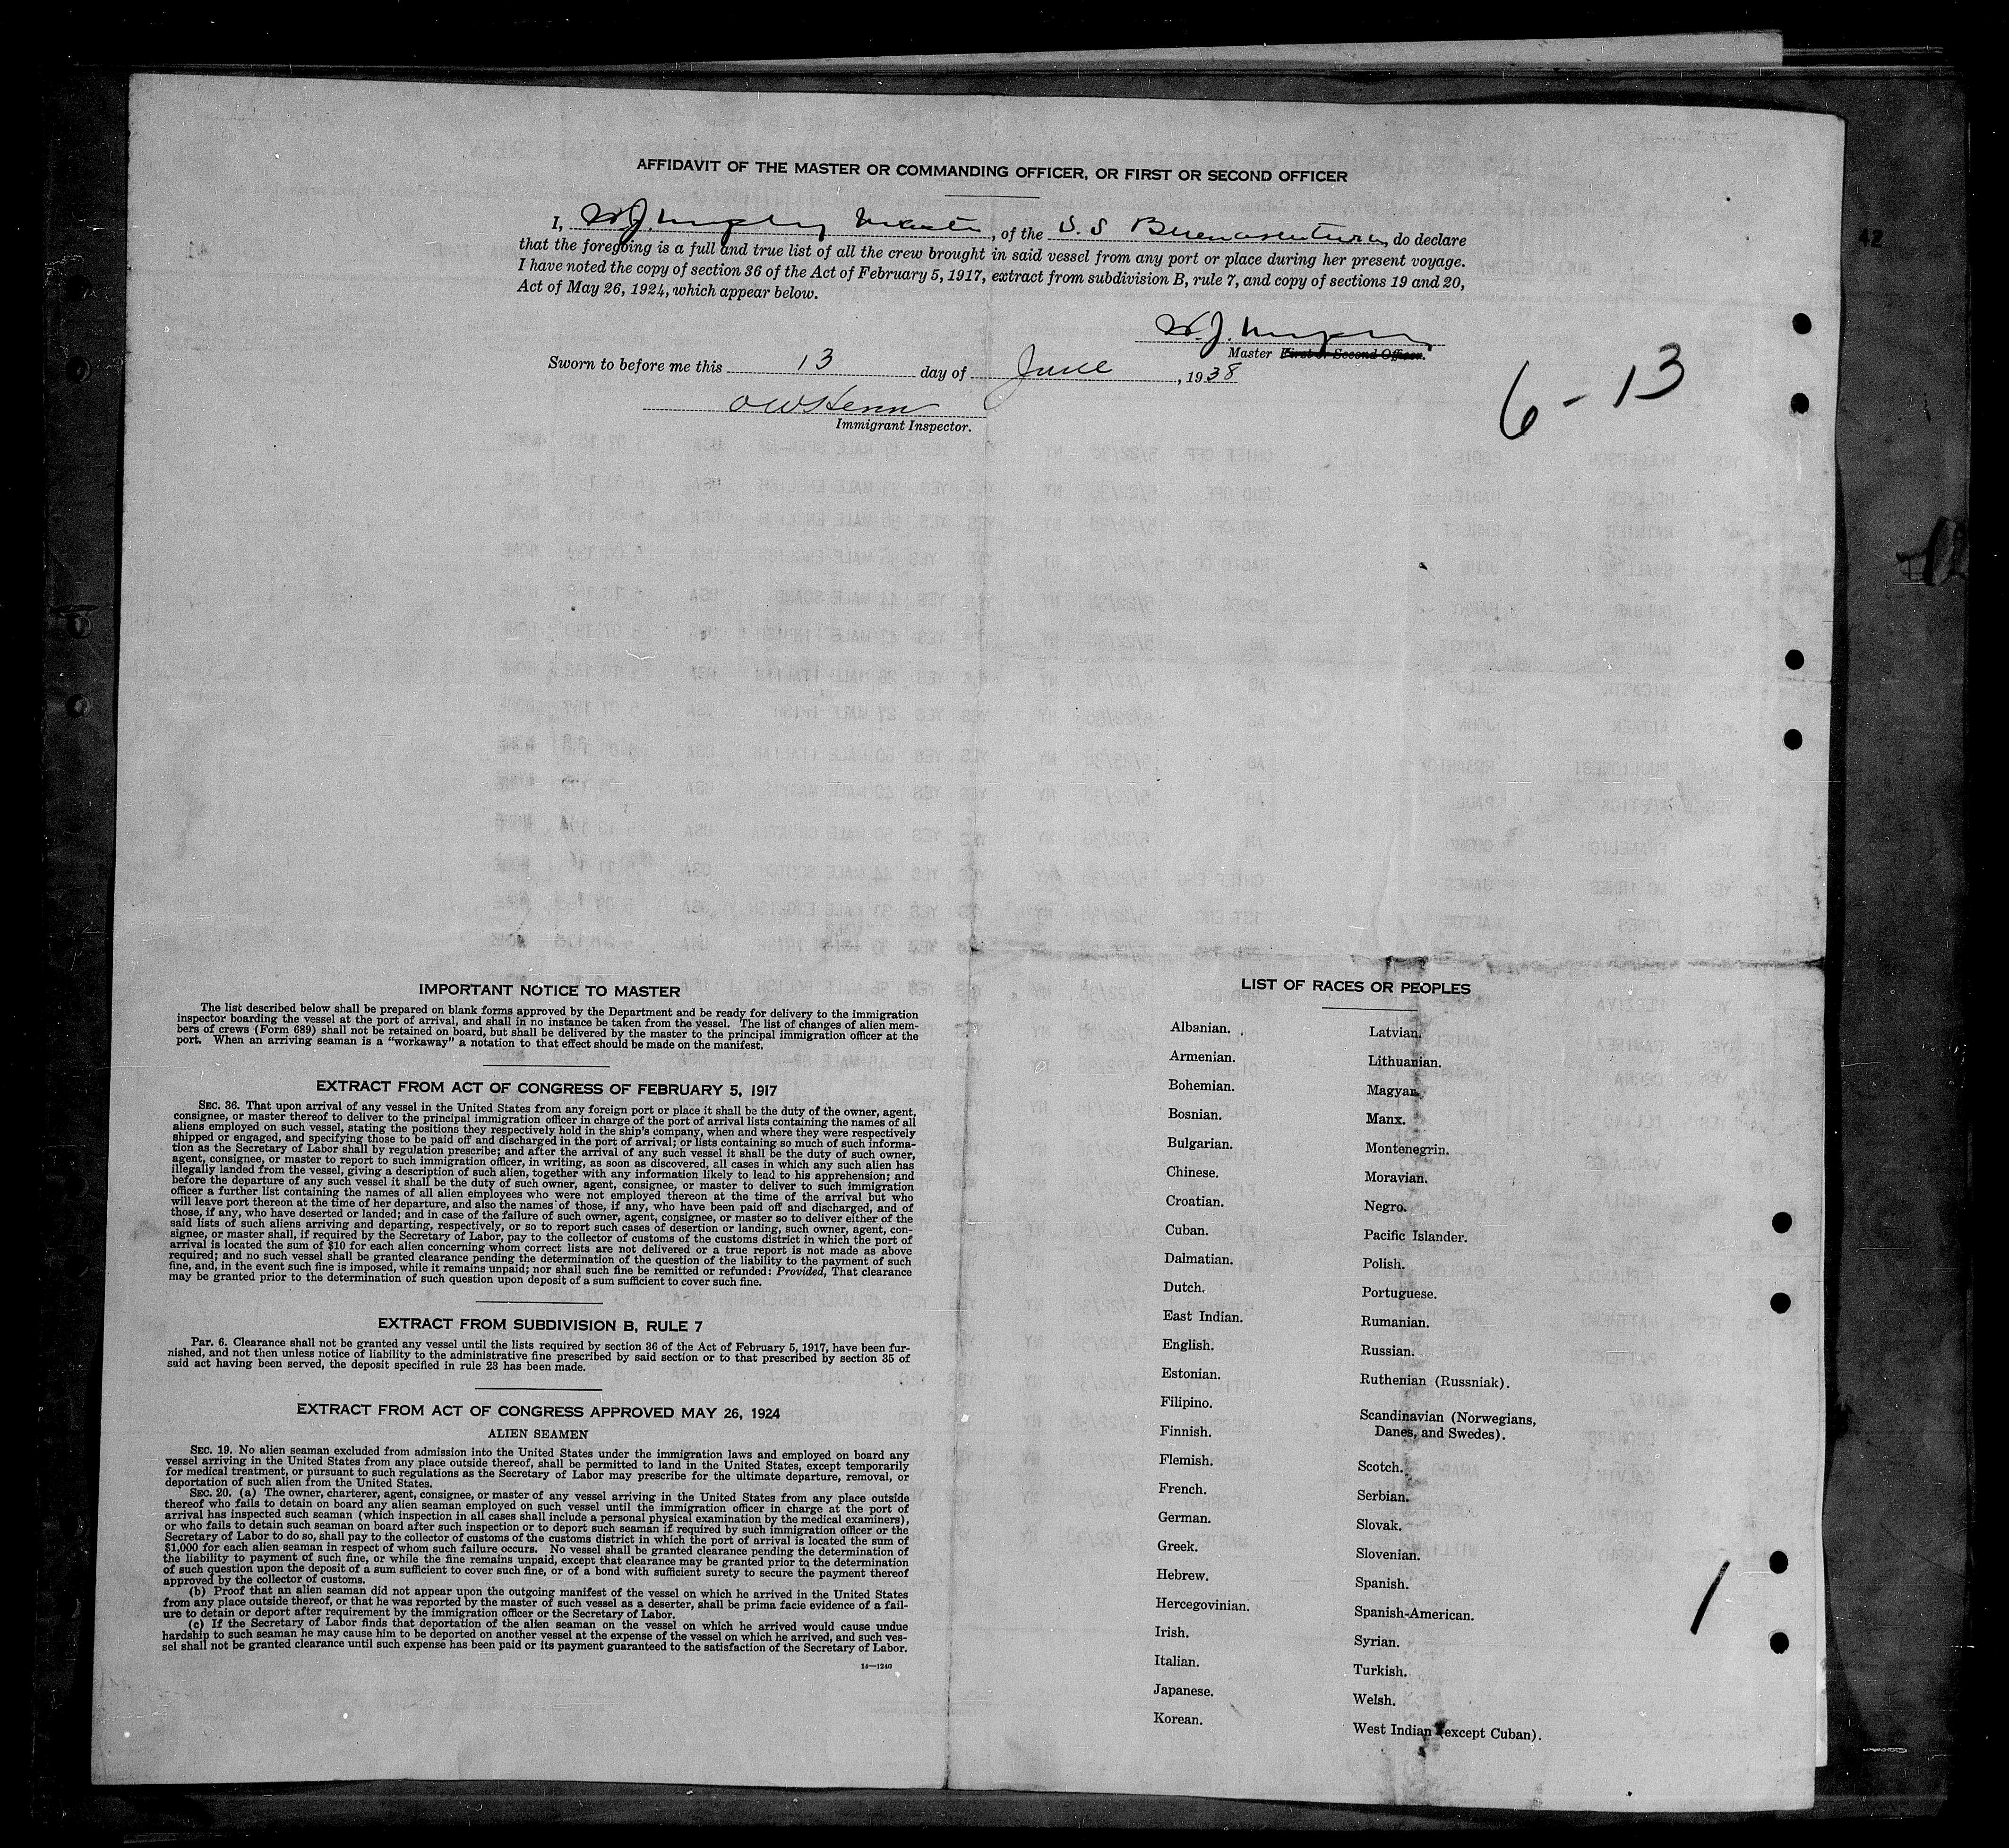 AFFIDAVIT OF THE MASTER OR COMMANDING OFFICER, OR FIRST OR SECOND OFFICER
I, W.J. Murphy Master, of the S.S Buenaventura, do declare
that the foregoing is a full and true list of all the crew brought in said vessel from any port or place during her present voyage.
I have noted the copy of section 36 of the Act of February 5, 1917, extract from subdivision B, rule 7, and copy of sections 19 and 20,
Act of May 26, 1924, which appear below.
W.J. Murphy
Master First or Second Officer.
Sworn to before me this 13 day of June, 1938
Immigrant Inspector.
6-13
42
IMPORTANT NOTICE TO MASTER
The list described below shall be prepared on blank forms approved by the Department and be ready for delivery to the immigration
inspector boarding the vessel at the port of arrival, and shall in no instance be taken from the vessel. The list of changes of alien mem-
bers of crews (Form 689) shall not be retained on board, but shall be delivered by the master to the principal immigration officer at the
port. When an arriving seaman is a "workaway" a notation to that effect should be made on the manifest.
EXTRACT FROM ACT OF CONGRESS OF FEBRUARY 5, 1917
SEC. 36. That upon arrival of any vessel in the United States from any foreign port or place it shall be the duty of the owner, agent,
consignee, or master thereof to deliver to the principal immigration officer in charge of the port of arrival lists containing the names of all
aliens employed on such vessel, stating the positions they respectively hold in the ship's company, when and where they were respectively
shipped or engaged, and specifying those to be paid off and discharged in the port of arrival; or lists containing so much of such informa-
tion as the Secretary of Labor shall by regulation prescribe; and after the arrival of any such vessel it shall be the duty of such owner,
agent, consignee, or master to report to such immigration officer, in writing, as soon as discovered, all cases in which any such alien has
illegally landed from the vessel, giving a description of such alien, together with any information likely to lead to his apprehension; and
before the departure of any such vessel it shall be the duty of such owner, agent, consignee, or master to deliver to such immigration
officer a further list containing the names of all alien employees who were not employed thereon at the time of the arrival but who
will leave port thereon at the time of her departure, and also the names of those, if any, who have been paid off and discharged, and of
those, if any, who have deserted or landed; and in case of the failure of such owner, agent, consignee, or master so to deliver either of the
said lists of such aliens arriving and departing, respectively, or so to report such cases of desertion or landing, such owner, agent, con-
signee, or master shall, if required by the Secretary of Labor, pay to the collector of customs of the customs district in which the port of
arrival is located the sum of $10 for each alien concerning whom correct lists are not delivered or a true report is not made as above
required; and no such vessel shall be granted clearance pending the determination of the question of the liability to the payment of such
fine, and, in the event such fine is imposed, while it remains unpaid; nor shall such fine be remitted or refunded: Provided, That clearance
may be granted prior to the determination of such question upon deposit of a sum sufficient to cover such fine.
EXTRACT FROM SUBDIVISION B, RULE 7
Par. 6. Clearance shall not be granted any vessel until the lists required by section 36 of the Act of February 5, 1917, have been fur-
nished, and not then unless notice of liability to the administrative fine prescribed by said section or to that prescribed by section 35 of
said act having been served, the deposit specified in rule 23 has been made.
EXTRACT FROM ACT OF CONGRESS APPROVED MAY 26, 1924
ALIEN SEAMEN
SEC. 19. No alien seaman excluded from admission into the United States under the immigration laws and employed on board any
vessel arriving in the United States from any place outside thereof, shall be permitted to land in the United States, except temporarily
for medical treatment, or pursuant to such regulations as the Secretary of Labor may prescribe for the ultimate departure, removal, or
deportation of such alien from the United States.
SEC. 20. (a) The owner, charterer, agent, consignee, or master of any vessel arriving in the United States from any place outside
thereof who fails to detain on board any alien seaman employed on such vessel until the immigration officer in charge at the port of
arrival has inspected such seaman (which inspection in all cases shall include a personal physical examination by the medical examiners),
or who fails to detain such seaman on board after such inspection or to deport such seaman if required by such immigration officer or the
Secretary of Labor to do so, shall pay to the collector of customs of the customs district in which the port of arrival is located the sum of
$1,000 for each alien seaman in respect of whom such failure occurs. No vessel shall be granted clearance pending the determination of
the liability to payment of such fine, or while the fine remains unpaid, except that clearance may be granted prior to the determination
of such question upon the deposit of a sum sufficient to cover such fine, or of a bond with sufficient surety to secure the payment thereof
approved by the collector of customs.
(b) Proof that an alien seaman did not appear upon the outgoing manifest of the vessel on which he arrived in the United States
from any place outside thereof, or that he was reported by the master of such vessel as a deserter, shall be prima facie evidence of a fail-
ure to detain or deport after requirement by the immigration officer or the Secretary of Labor.
(c) If the Secretary of Labor finds that deportation of the alien seaman on the vessel on which he arrived would cause undue
hardship to such seaman he may cause him to be deported on another vessel at the expense of the vessel on which he arrived, and such ves-
sel shall not be granted clearance until such expense has been paid or its payment guaranteed to the satisfaction of the Secretary of Labor.
14—1240
LIST OF RACES OR PEOPLES
Albanian.
Armenian.
Bohemian.
Bosnian.
Bulgarian.
Chinese.
Croatian.
Cuban.
Dalmatian.
Dutch.
East Indian.
English.
Estonian.
Filipino.
Finnish.
Flemish.
French.
German.
Greek.
Hebrew.
Hercegovinian.
Irish.
Italian.
Japanese.
Korean.
Latvian.
Lithuanian.
Magyar.
Manx.
Montenegrin.
Moravian.
Negro.
Pacific Islander.
Polish.
Portuguese.
Rumanian.
Russian.
Ruthenian (Russniak).
Scandinavian (Norwegians,
Danes, and Swedes).
Scotch.
Serbian.
Slovak.
Slovenian.
Spanish.
Spanish-American.
Syrian.
Turkish.
Welsh.
West Indian (except Cuban).
1